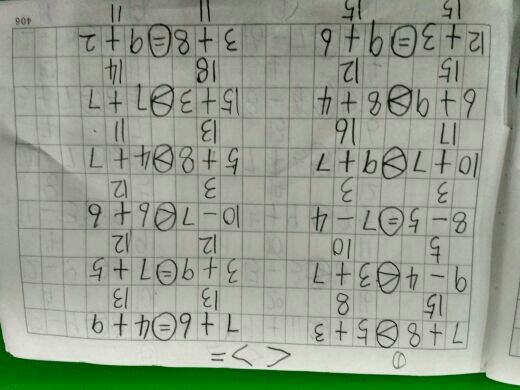 ① < > =
7+8>5+3 7+6=4+9
15 8 13 13
9-4<3+7 3+9=7+5
5 10 12 12
8-5=7-4 10-7<6+6
3 3 3 12
10+7>9+7 5+8>4+7
17 16 13 11
6+9>8+4 15+3>7+7
15 12 18 14
12+3=9+6 3+8=9+2
15 15 11 11